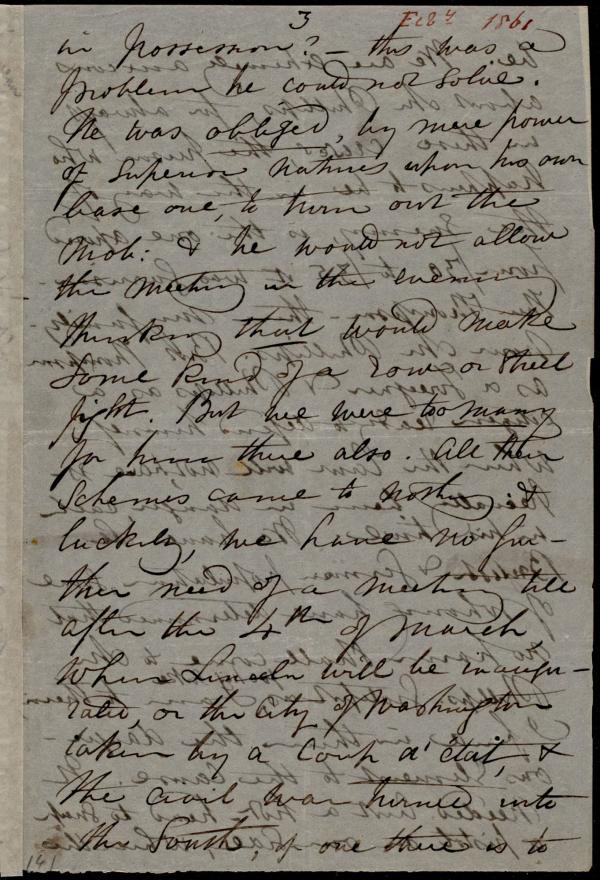 3 Feb 4 1861
in possession? — this was a
problem he could not solve.
He was obliged, by mere power
of superior natures upon his own
base one, to turn out the
mob: & he would not allow
the meeting in the evening
thinking that would make
some kind of a row or street
fight. But we were too many
for him there also. All their
schemes came to nothing: &
luckily, we have no fur-
ther need of a meeting till
after the 4th of March,
when Lincoln will be inaugu-
rated, or the city of Washington
taken by a coup d'état, &
the civil war turned into
the South, if one there is to
141